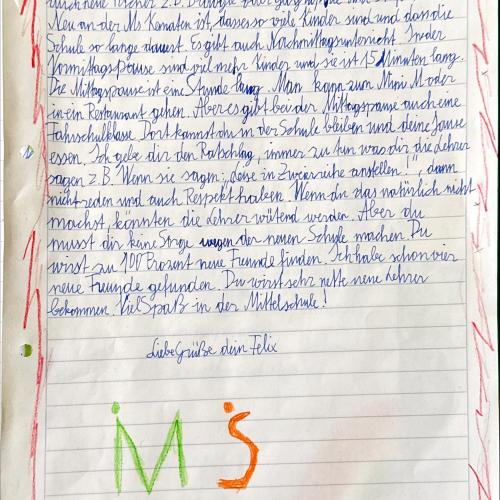 durch neue Fächer z.B.
Neu an der Ms Kematen ist, dass es so viele Kinder sind und das die
Schule so lange dauert. Es gibt auch Nachmittagsunterricht. In der
Vormittagspause sind viel mehr Kinder und sie ist 15 Minuten lang.
Die Mittagspause ist eine Stunde lang. Man kann zum Mini M oder
in ein Restaurant gehen. Aber es gibt bei der Mittagspause auch eine
Fahrschulklasse. Dort kannst du in der Schule bleiben und deine Jause
essen. Ich gebe dir den Ratschlag, immer zu tun was dir die Lehrer
sagen z.B. Wenn sie sagen: „ leise in Zweierreihe anstellen!“, dann
nicht reden und auch Respekt haben. Wenn du das natürlich nicht
machst, könnten die Lehrer wütend werden. Aber du
musst dir keine Sorge wegen der neuen Schule machen. Du
wirst zu 100 Prozent neue Freunde finden. Ich habe schon vier
neue Freunde gefunden. Du wirst sehr nette neue Lehrer
bekommen. Viel Spaß in der Mittelschule!
Liebe Grüße dein Felix
M S